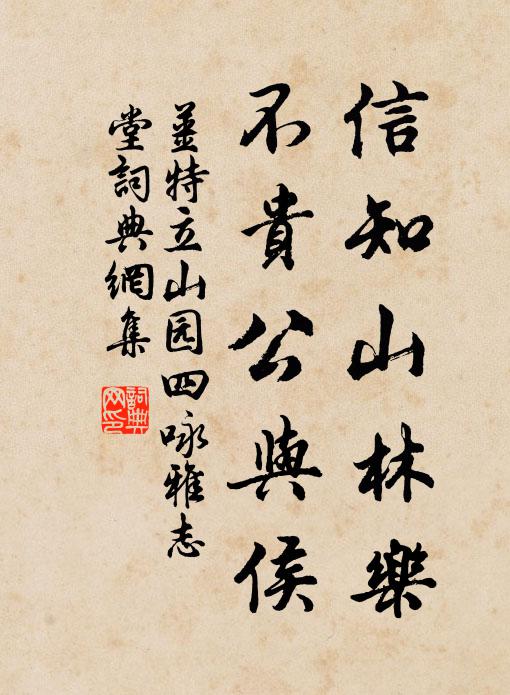 信知山林樂
不貴公與侯
姜特立山园四咏雅志
堂詞典網集
詞典网印